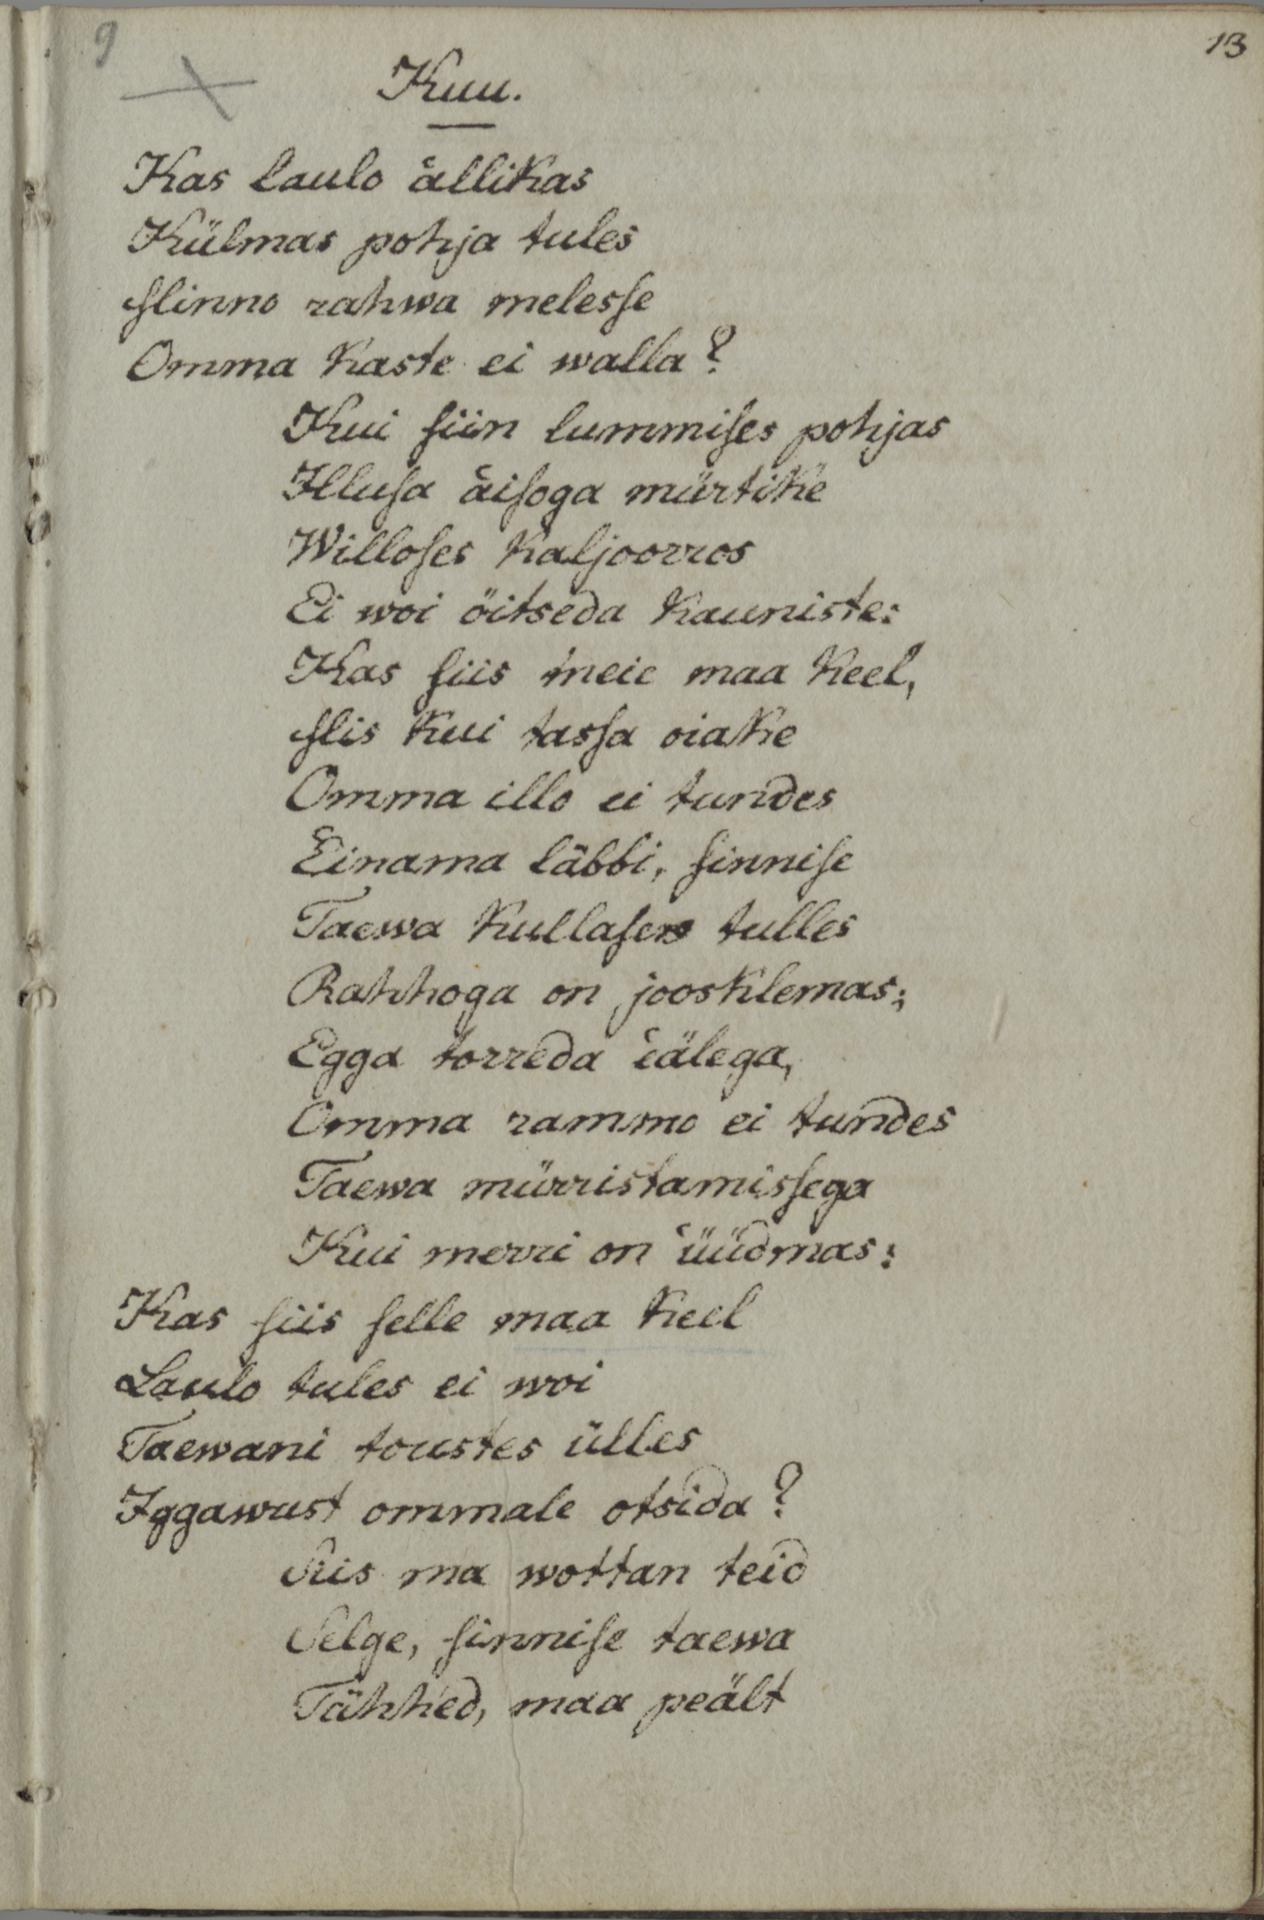 9
13
Kuu.
Kas laulo ̔allikas
Külmas pohja tules
Minno rahwa melesſe
Omma kaste ei walla?
Kui ſiin lummiſes pohjas
Illuſa ̔aiſoga mürtike
Willoſes kaljoorros
Ei woi öitseda kauniste:
Kas ſiis meie maa keel,
Mis kui tasſa oiake
Omma illo ei tundes
Einama läbbi, ſinniſe
Taewa kullaſes tulles
Rahhoga on joosklemas;
Egga torreda ̔eälega,
Omma rammo ei tundes
Taewa mürristamisſega
Kui merri on ̔üüdmas:
Kas ſiis ſelle maa keel
Laulo tules ei woi
Taewani toustes ülles
Iggawust ommale otsida?
Siis ma wottan teid
Selge, ſinniſe taewa
Tähhed, maa peält